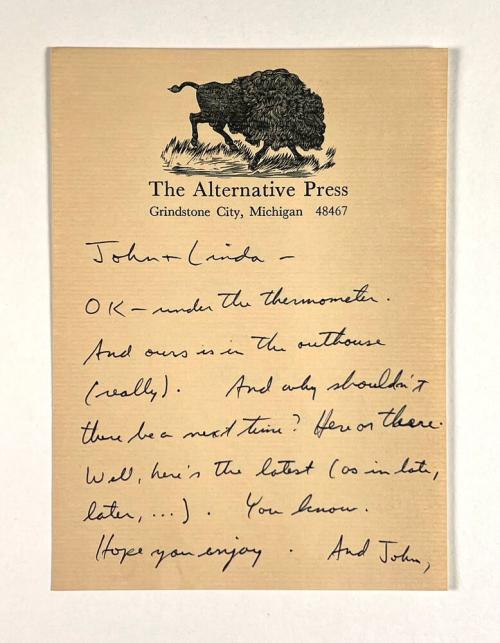 The Alternative Press
Grindstone City, Michigan 48467
John + Linda –
OK – under the thermometer.
And ours is in the outhouse
(really). And why shouldn't
there be a next time? Here or there.
Well, here's the latest (as in late,
later, ...). You know.
Hope you enjoy. And John,